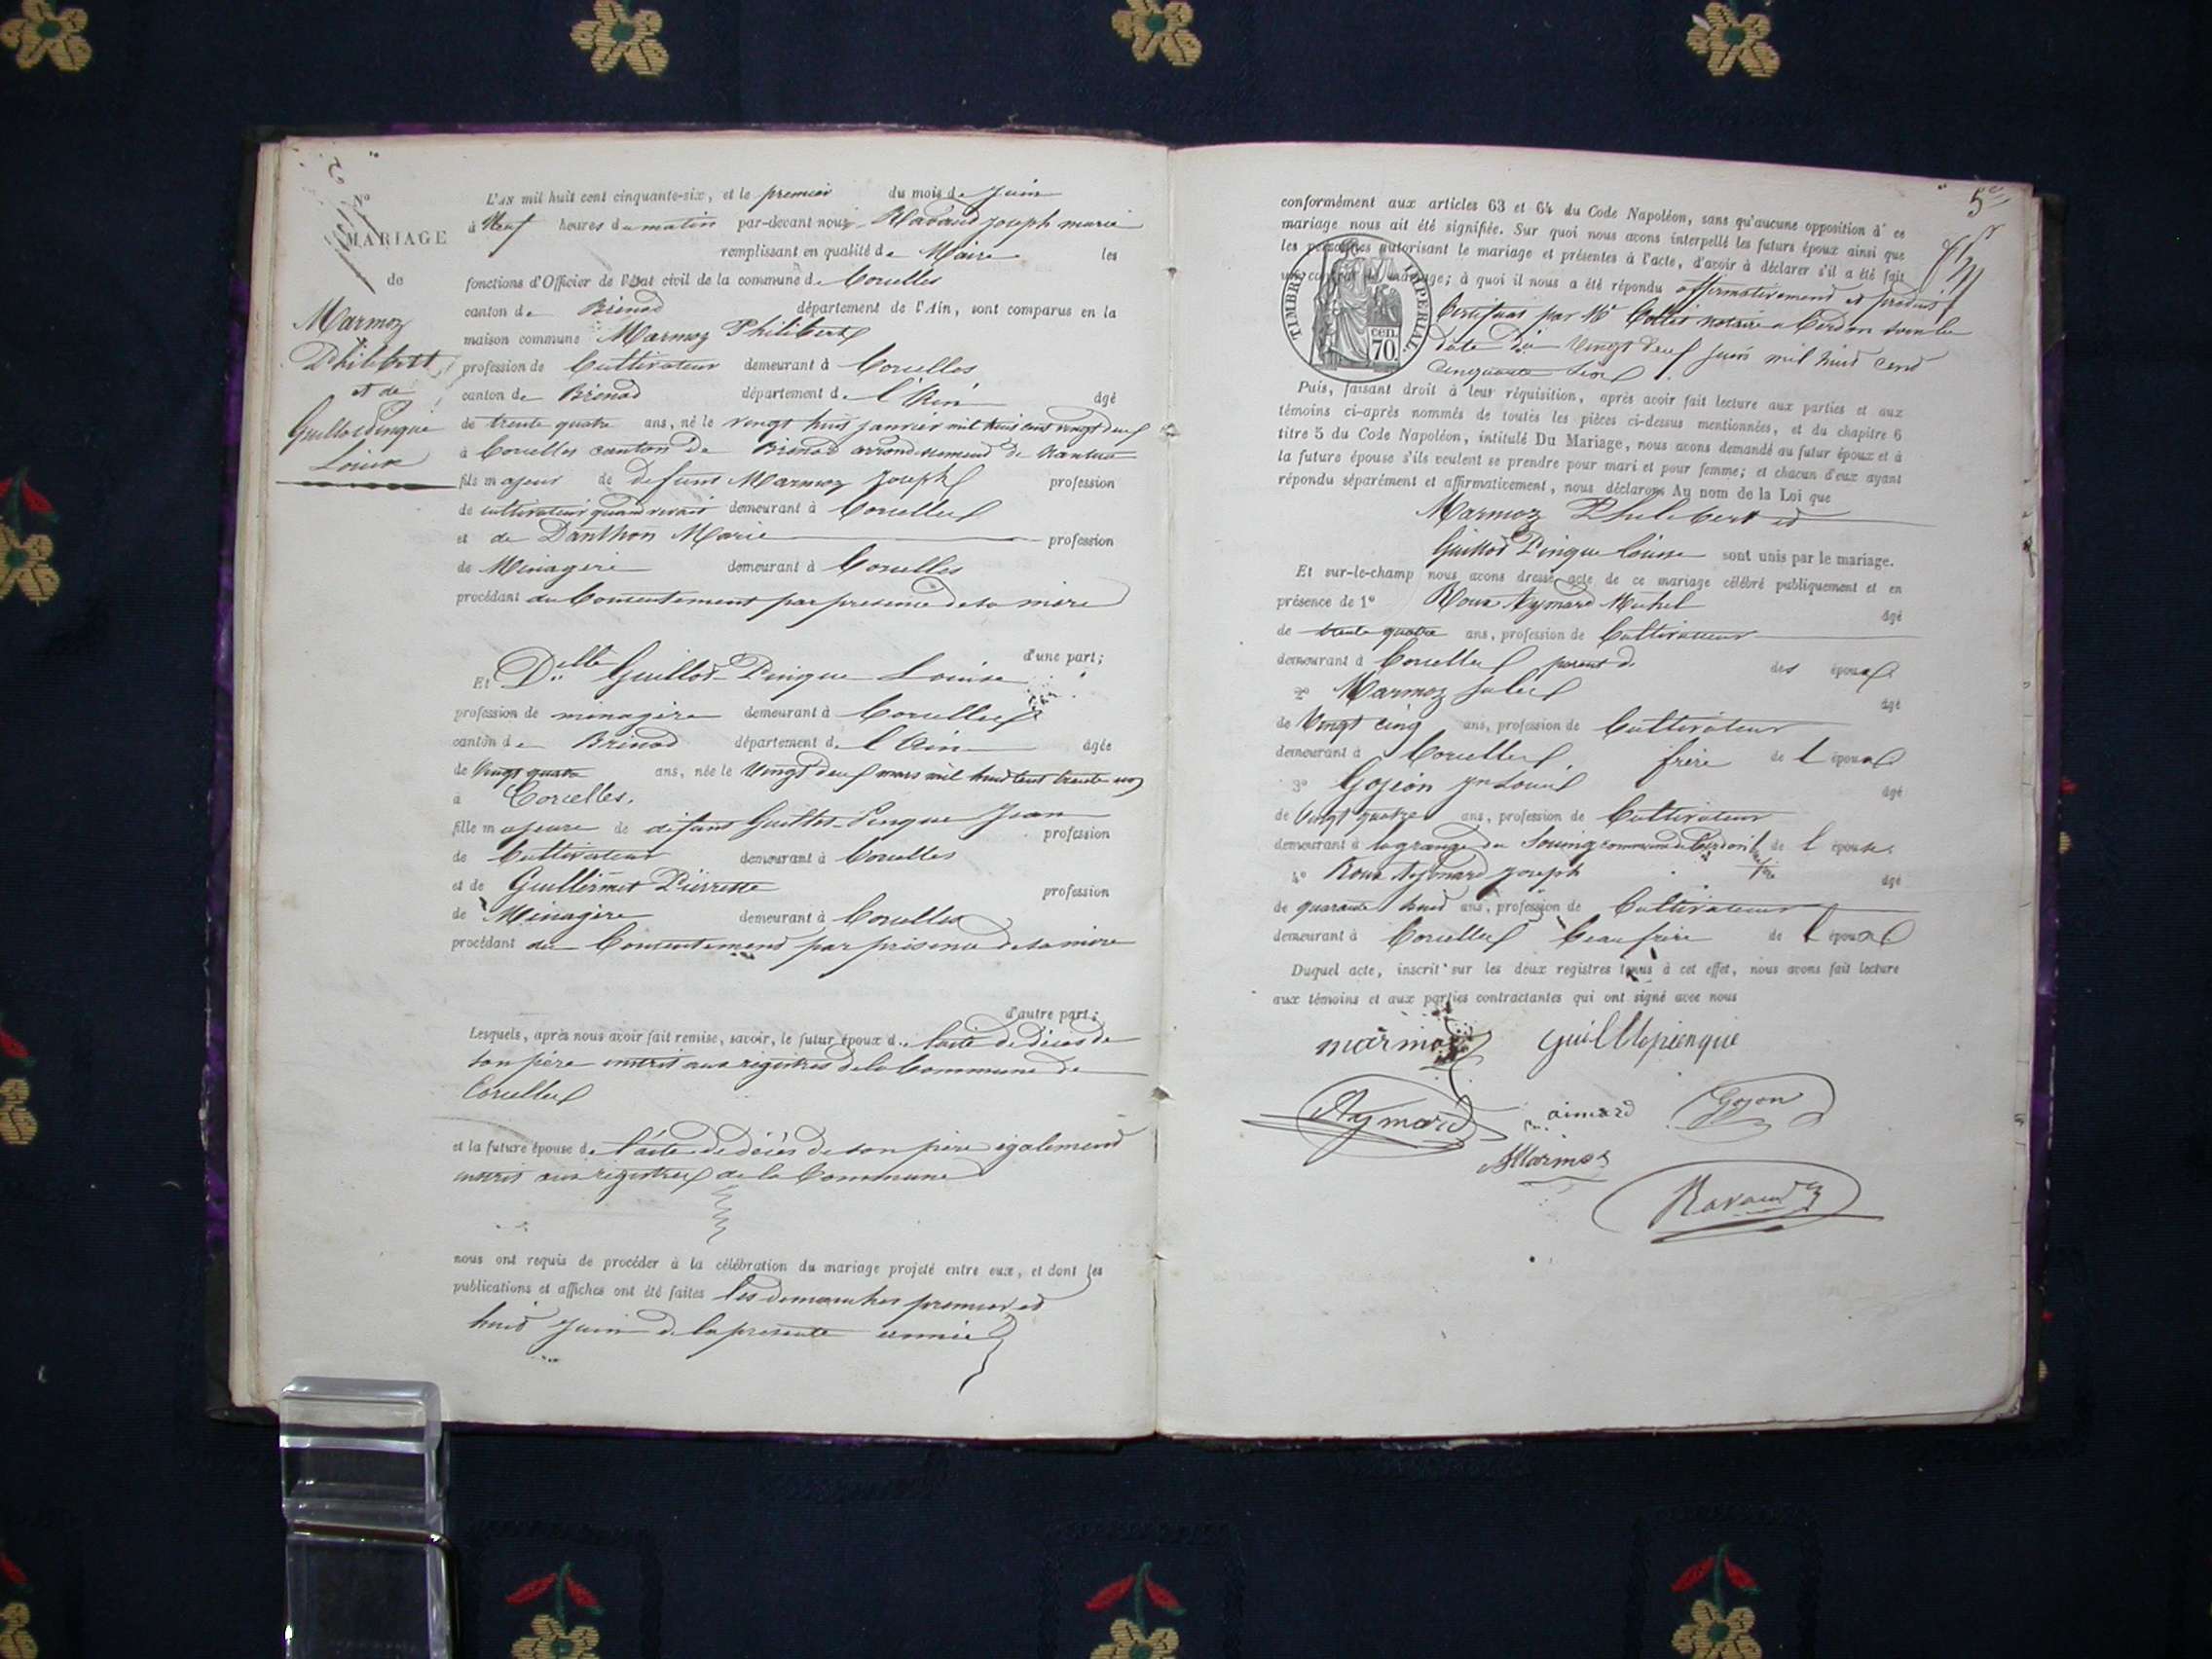 N°
MARIAGE
de
Marmoz
Philibert
et de
Guillot Pingue
Louise
L'AN mil huit cent cinquante-six, et le premier du mois de Juin
à Neuf heures du matin par-devant nous Ravaud Joseph marie
remplissant en qualité de Maire les
fonctions d'Officier de l'état civil de la commune de Corcelles
canton de Brenod département de l'Ain, sont comparus en la
maison commune Marmoz Philibert
profession de Cultivateur demeurant à Corcelles
canton de Brenod département de l'Ain âgé
de trente quatre ans, né le vingt huit janvier mil huit cent vingt deux
à Corcelles canton de Brenod arrondissement de Nantua
fils majeur de defunt Marmoz Joseph profession
de cultivateur quand vivait demeurant à Corcelles
et de Danthon Marie profession
de Ménagère demeurant à Corcelles
procédant du Consentement par presence de sa mère
d'une part;
Et Delle Guillot-Pingue Louise
profession de ménagère demeurant à Corcelles
canton de Brenod département de l'Ain âgée
de Vingt quatre ans, née le Vingt deux mars mil huit cent trente
à Corcelles.
fille majeure de défunt Guillot-Pingue Jean profession
de Cultivateur demeurant à Corcelles
et de Guillermet Pierrette profession
de Ménagère demeurant à Corcelles
procédant du Consentement par présence de sa mère
d'autre part;
Lesquels, après nous avoir fait remise, savoir, le futur époux de l'acte de décès de
son père inscrit aux registres de la Commune de
Corcelles
et la future épouse de l'acte de décès de son père également
inscrit aux registres de la Commune
nous ont requis de procéder à la célébration du mariage projeté entre eux, et dont les
publications et affiches ont été faites les dimanches premier et
huit Juin de la presente année
5
conformément aux articles 63 et 64 du Code Napoléon, sans qu'aucune opposition à ce
mariage nous ait été signifiée. Sur quoi nous avons interpellé les futurs époux ainsi que
les personnes autorisant le mariage et présentes à l'acte, d'avoir à déclarer s'il a été fait
un contrat de mariage; à quoi il nous a été répondu affirmativement et produit
TIMBRE IMPERIAL.
cen.
70
Certificat par Me Collet notaire a Cerdon sous la
date du Vingt deux juin mil huit cent
cinquante six
Puis, faisant droit à leur réquisition, après avoir fait lecture aux parties et aux
témoins ci-après nommés de toutes les pièces ci-dessus mentionnées, et du chapitre 6
titre 5 du Code Napoléon, intitulé Du Mariage, nous avons demandé au futur époux et à
la future épouse s'ils veulent se prendre pour mari et pour femme; et chacun d'eux ayant
répondu séparément et affirmativement, nous déclarons Au nom de la Loi que
Marmoz Philibert et
Guillot Pingue Louise sont unis par le mariage.
Et sur-le-champ nous avons dressé acte de ce mariage célébré publiquement et en
présence de 1° Roux Aymard Michel âgé
de trente quatre ans, profession de Cultivateur
demeurant à Corcelles parent d des époux
2° Marmoz Jules âgé
de Vingt cinq ans, profession de Cultivateur
demeurant à Corcelles frère de l époux
3° Gojon Jn Louis âgé
de Vingt quatre ans, profession de Cultivateur
demeurant à la grange du commune de Cerdon de l épouse
4° Roux Aymard Joseph âgé
de quarante huit ans, profession de Cultivateur
demeurant à Corcelles beau frère de l époux
Duquel acte, inscrit sur les deux registres tenus à cet effet, nous avons fait lecture
aux témoins et aux parties contractantes qui ont signé avec nous
marmoz guillopiengue
Aymard aimard Gojon
Marmoz
Ravaud